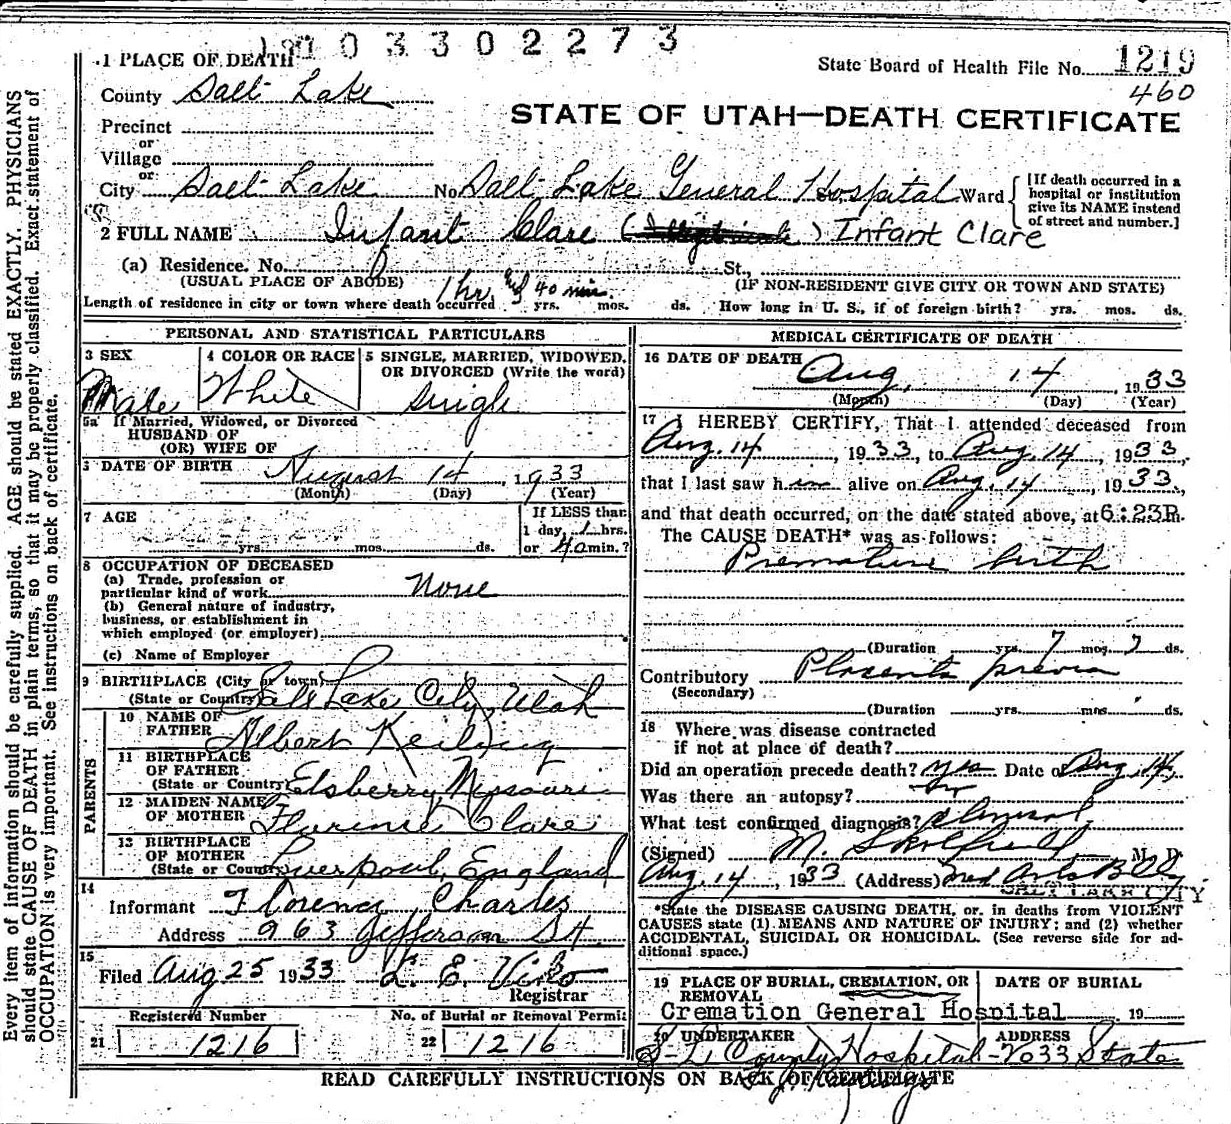 0 3 3 0 2 2 7 3
1 PLACE OF DEATH
State Board of Health File No. 1219
460
County Salt Lake
STATE OF UTAH—DEATH CERTIFICATE
Precinct
or
Village
or
City Salt Lake No. Salt Lake General Hospital Ward
[If death occurred in a hospital or institution give its NAME instead of street and number.]
2 FULL NAME Infant Clare ( ) Infant Clare
(a) Residence. No. St.,
(USUAL PLACE OF ABODE) (IF NON-RESIDENT GIVE CITY OR TOWN AND STATE)
1 hr 40 min.
Length of residence in city or town where death occurred yrs. mos. ds. How long in U. S., if of foreign birth? yrs. mos. ds.
PERSONAL AND STATISTICAL PARTICULARS
3 SEX Male
4 COLOR OR RACE White
5 SINGLE, MARRIED, WIDOWED, OR DIVORCED (Write the word) Single
5a If Married, Widowed, or Divorced
HUSBAND OF
(OR) WIFE OF
DATE OF BIRTH August 14 1933
(Month) (Day) (Year)
7 AGE yrs. mos. ds.
If LESS than 1 day, 1 hrs. or 40 min.?
8 OCCUPATION OF DECEASED
(a) Trade, profession or particular kind of work None
(b) General nature of industry, business, or establishment in which employed (or employer)
(c) Name of Employer
9 BIRTHPLACE (City or town)
(State or Country) Salt Lake City, Utah
PARENTS
10 NAME OF FATHER Albert
11 BIRTHPLACE OF FATHER
(State or Country) Elsberry, Missouri
12 MAIDEN NAME OF MOTHER Florence Clare
13 BIRTHPLACE OF MOTHER
(State or Country) Liverpool, England
14 Informant Florence Charles
Address 963 Jefferson St
15 Filed Aug 25 1933 L. E. Viko
Registrar
Registered Number
21 1216
No. of Burial or Removal Permit
22 1216
MEDICAL CERTIFICATE OF DEATH
16 DATE OF DEATH Aug. 14, 1933
(Month) (Day) (Year)
17 I HEREBY CERTIFY, That I attended deceased from
Aug. 14, 1933, to Aug. 14, 1933,
that I last saw him alive on Aug. 14, 1933,
and that death occurred, on the date stated above, at 6:23 P.m.
The CAUSE DEATH* was as follows:
Premature birth
(Duration yrs. 7 mos. ds.
Contributory Placenta previa
(Secondary)
(Duration yrs. mos. ds.
18 Where was disease contracted
if not at place of death?
Did an operation precede death? yes Date of Aug 14,
Was there an autopsy? no
What test confirmed diagnosis? clinical
(Signed) M. Skolfield M. D.
Aug. 14, 1933 (Address) Med Arts Bldg.
SALT LAKE CITY
*State the DISEASE CAUSING DEATH, or, in deaths from VIOLENT
CAUSES state (1) MEANS AND NATURE OF INJURY; and (2) whether
ACCIDENTAL, SUICIDAL OR HOMICIDAL. (See reverse side for additional space.)
19 PLACE OF BURIAL, CREMATION, OR REMOVAL DATE OF BURIAL
Cremation General Hospital 19
20 UNDERTAKER ADDRESS
S. L. County Hospital - 2033 State
READ CAREFULLY INSTRUCTIONS ON BACK OF CERTIFICATE
Every item of information should be carefully supplied. AGE should be stated EXACTLY. PHYSICIANS
should state CAUSE OF DEATH in plain terms, so that it may be properly classified. Exact statement of
OCCUPATION is very important. See instructions on back of certificate.